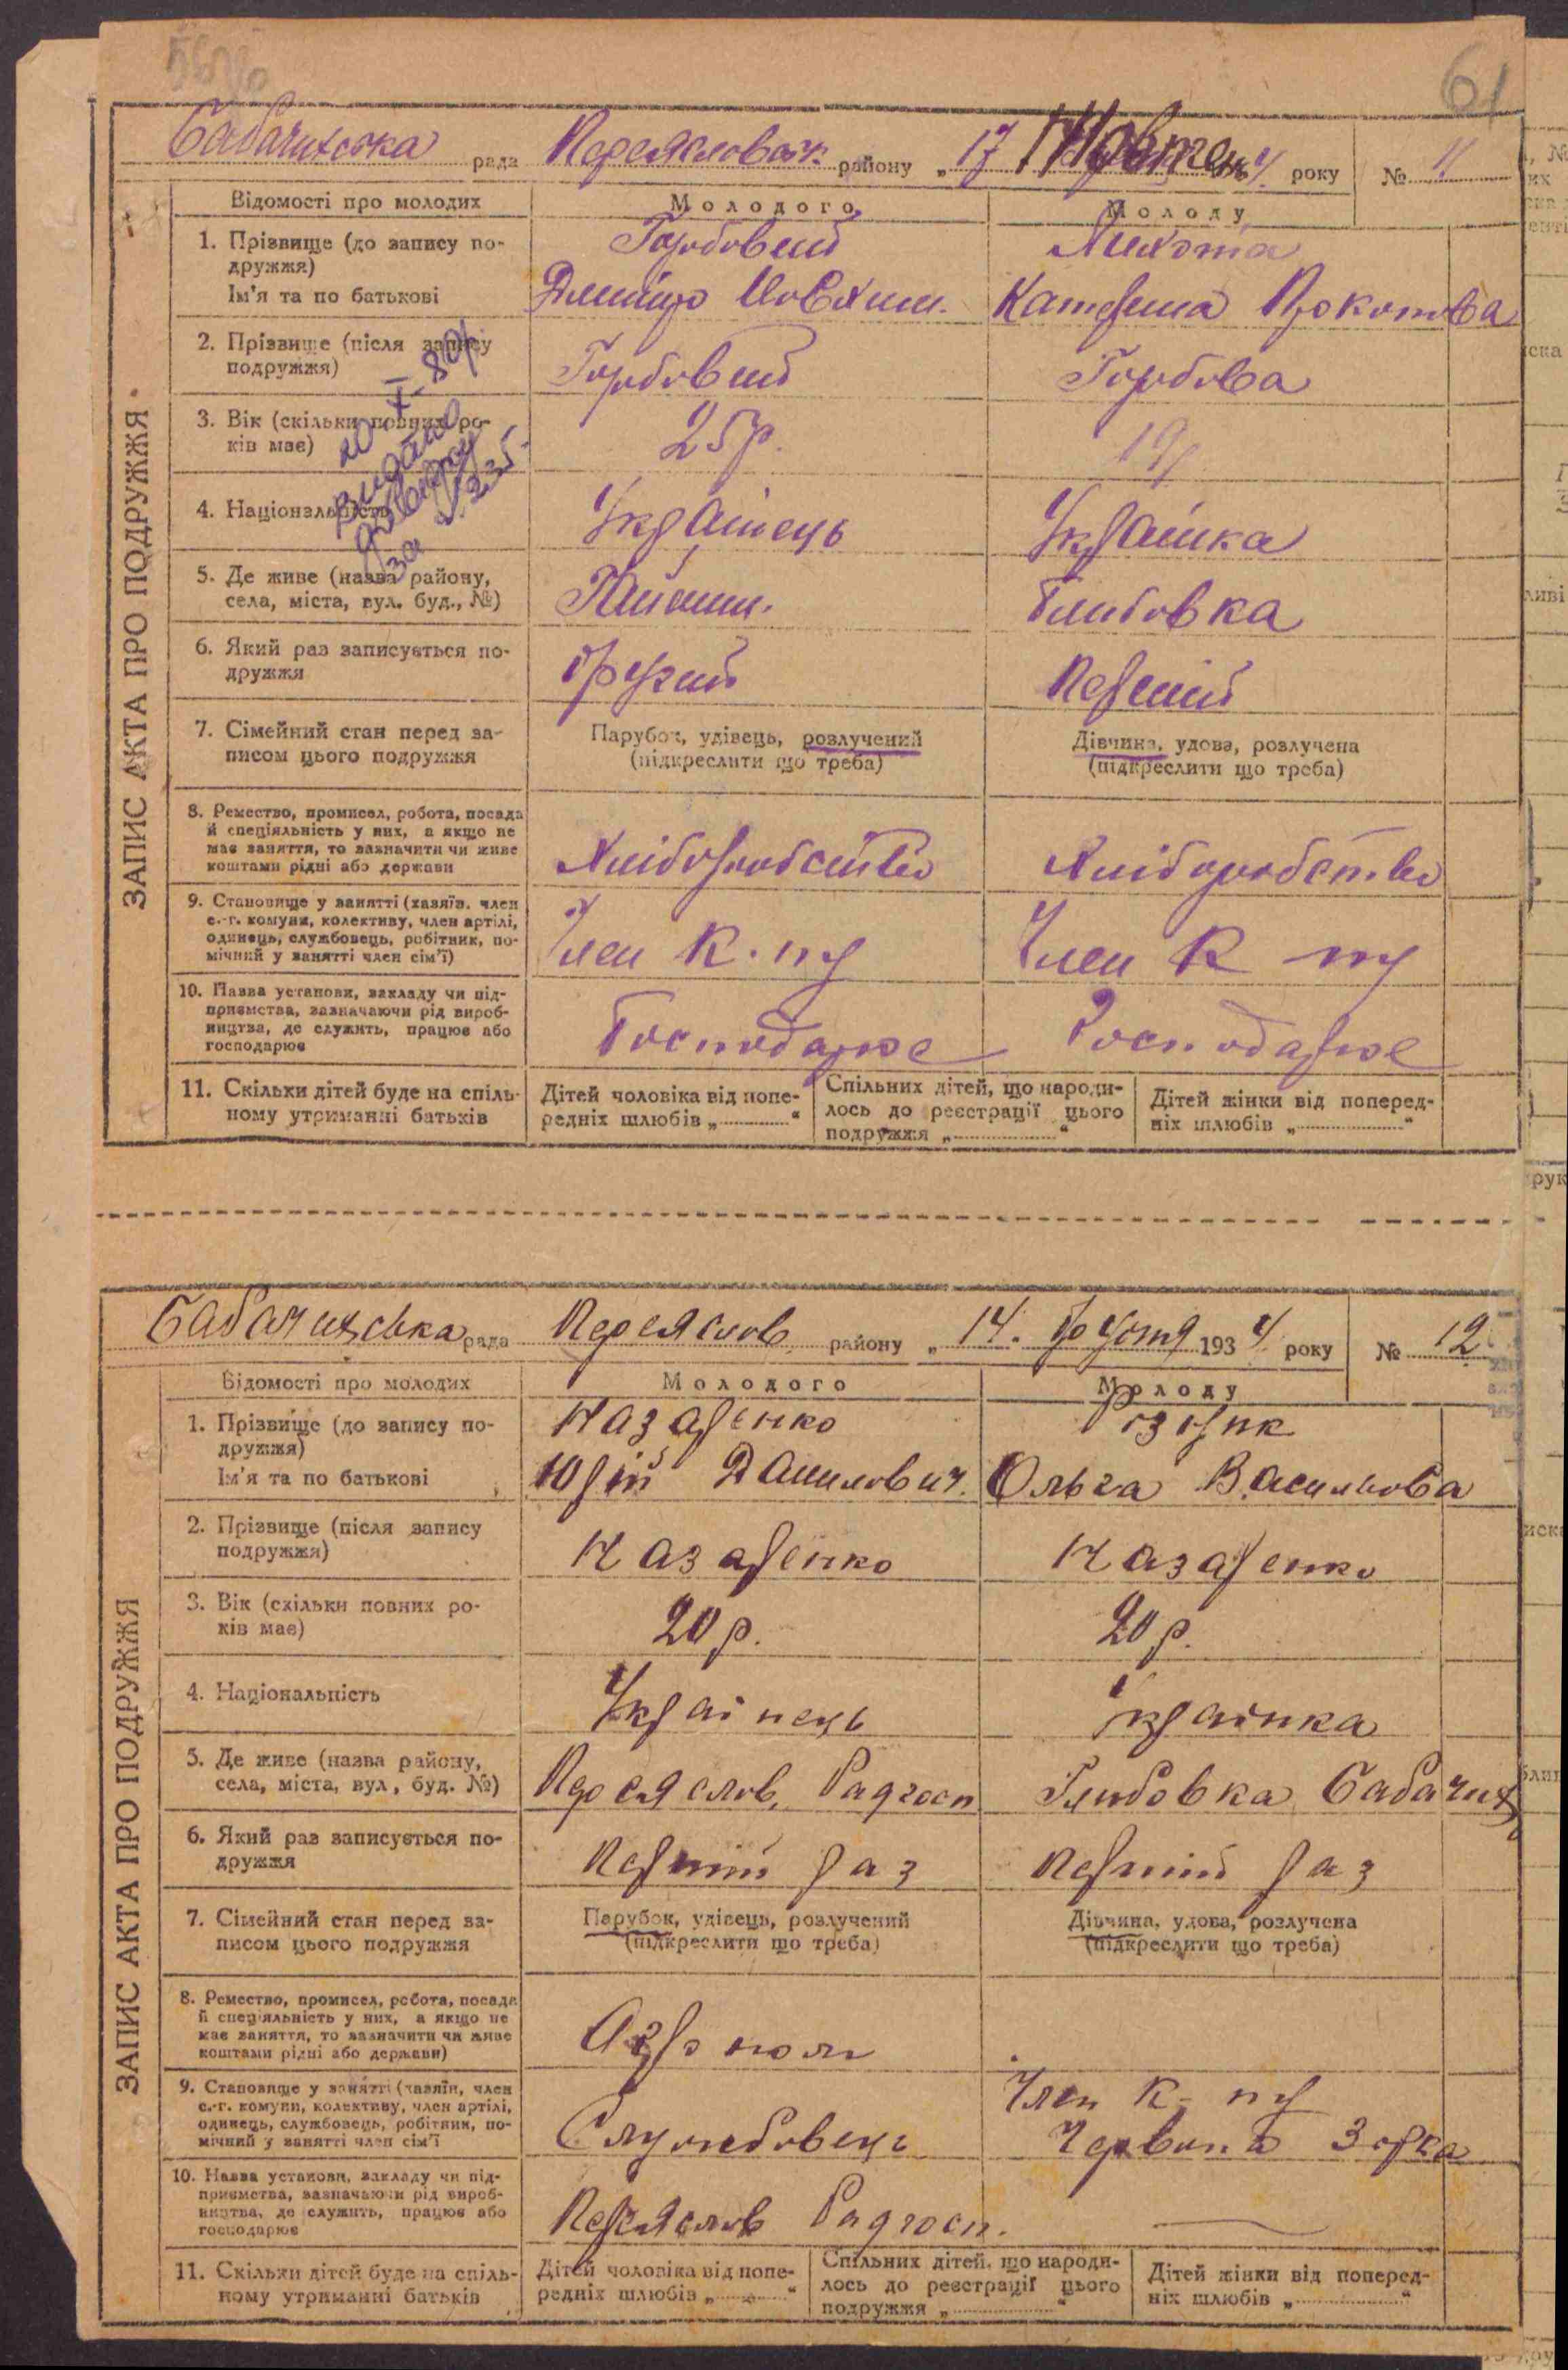 61
Бабачихська рада Переясловськ. району „17 Жовтень 4 року № 11
ЗАПИС АКТА ПРО ПОДРУЖЖЯ
Відомості про молодих Молодого Молоду
1. Прізвище (до запису по-
дружжя)
Горбовий
Ім'я та по батькові
Дмитро Катерина Прокопова
2. Прізвище (після запису
подружжя)
Горбовий Горбова
3. Вік (скільки повних ро-
ків має)
25р. 19р
4. Національність
Українець Українка
5. Де живе (назва району,
села, міста, вул. буд., №)
Глибовка
6. Який раз записується по-
дружжя
другий Перший
7. Сімейний стан перед за-
писом цього подружжя
Парубок, удівець, розлучений
(підкреслити що треба)
Дівчина, удова, розлучена
(підкреслити що треба)
8. Ремество, промисел, робота, посада
й спеціяльність у них, а якщо не
має заняття, то зазначити чи живе
коштами рідні або держави
Хліборобство Хліборобство
9. Становище у занятті (хазяїн, член
с.-г. комуни, колективу, член артілі,
одинець, службовець, робітник, по-
мічний у занятті член сім'ї)
Член К. пу Член К пу
10. Назва установи, закладу чи під-
приємства, зазначаючи рід вироб-
ництва, де служить, працює або
господарює
Господарює Господарює
11. Скільки дітей буде на спіль-
ному утриманні батьків
Дітей чоловіка від попе-
редніх шлюбів „ “
Спільних дітей, що народи-
лось до реєстрації цього
подружжя „ “
Дітей жінки від поперед-
ніх шлюбів „ “
видано
довідку
за № 235
Бабачихська рада Переяслов. району „14. Грудня 1934 року № 12
ЗАПИС АКТА ПРО ПОДРУЖЖЯ
Відомості про молодих Молодого Молоду
1. Прізвище (до запису по-
дружжя)
Назаренко Різник
Ім'я та по батькові
Юрій Данилович. Ольга Васильова
2. Прізвище (після запису
подружжя)
Назаренко Назаренко
3. Вік (скільки повних ро-
ків має)
20р. 20р.
4. Національність
Українець Українка
5. Де живе (назва району,
села, міста, вул, буд. №)
Переяслов, Радгосп Глибовка Бабачих
6. Який раз записується по-
дружжя
Перший раз Перший раз
7. Сімейний стан перед за-
писом цього подружжя
Парубок, удівець, розлучений
(підкреслити що треба)
Дівчина, удова, розлучена
(підкреслити що треба)
8. Ремество, промисел, робота, посада
й спеціяльність у них, а якщо не
має заняття, то зазначити чи живе
коштами рідні або держави)
Агроном
9. Становище у занятті (хазяїн, член
с.-г. комуни, колективу, член артілі,
одинець, службовець, робітник, по-
мічний у занятті член сім'ї
Службовець
Член К-пу
Червона Зорка
10. Назва установи, закладу чи під-
приємства, зазначаючи рід вироб-
ництва, де служить, працює або
господарює
Переяслов Радгосп.
11. Скільки дітей буде на спіль-
ному утриманні батьків
Дітей чоловіка від попе-
редніх шлюбів „ “
Спільних дітей, що народи-
лось до реєстрації цього
подружжя „ “
Дітей жінки від поперед-
ніх шлюбів „ “